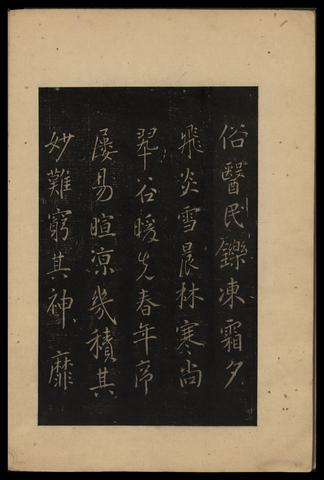 俗醫民鑠凍霜夕
飛炎雪晨林寒尚
翆谷暖先春年序
屢易暄凉幾積其
妙難窮其神靡